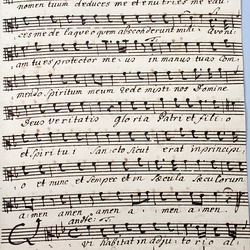 nomen tuum deduces me et enutries me edu
ces me de laqueo quem absconderunt mihi quoni
am tu es protector meus in manus tuas com
mendo Spiritum meum redemisti nos Domine
Deus veritatis Gloria Patri et Fili o
et Spiritui Sancto Sicut erat in princip:
o et nunc et semper et in Sæcula Sæculorum
amen amen amen a. men. amen.
andte:
Qui habitat in adjutorio al